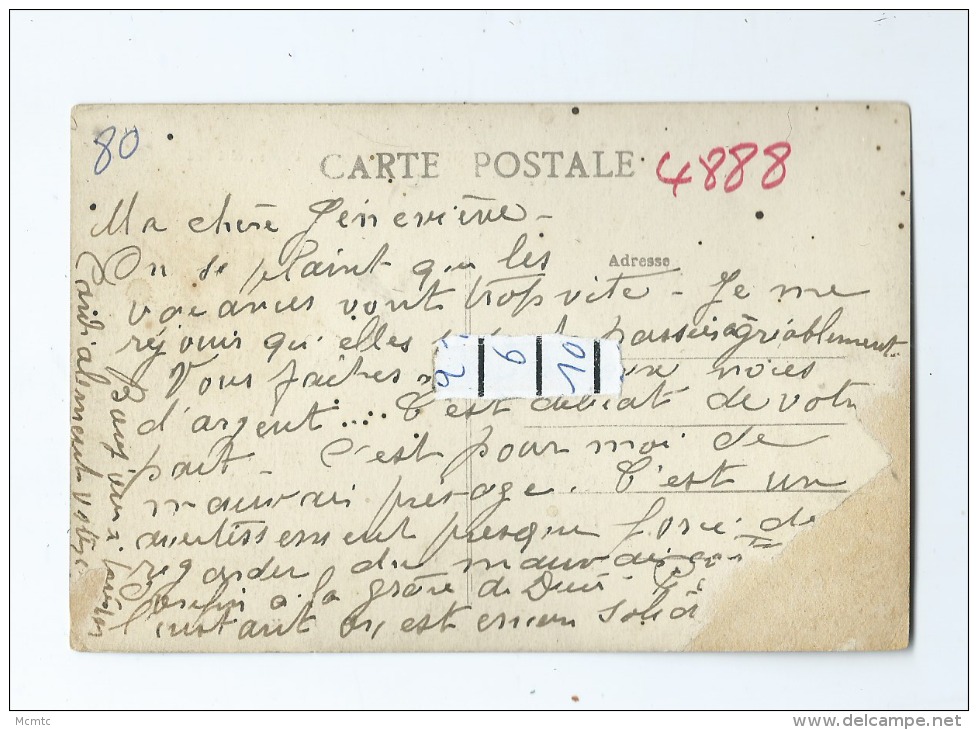 80
CARTE POSTALE
4888
Ma chère Geneviève -
Adresse
On se plaint que les
vacances vont trop vite - Je me
réjouis qu'elles passées agréablement.
Vous faites noces
2 6 10
d'argent.... C'est délicat de votre
part - C'est pour moi de
mauvais présage. C'est un
avertissement presque forcé de
regarder du mauvais
Enfin à la grâce de Dieu
l'instant on est encore solid
Cordialement votre
Bons
Mcmtc
www.delcampe.net